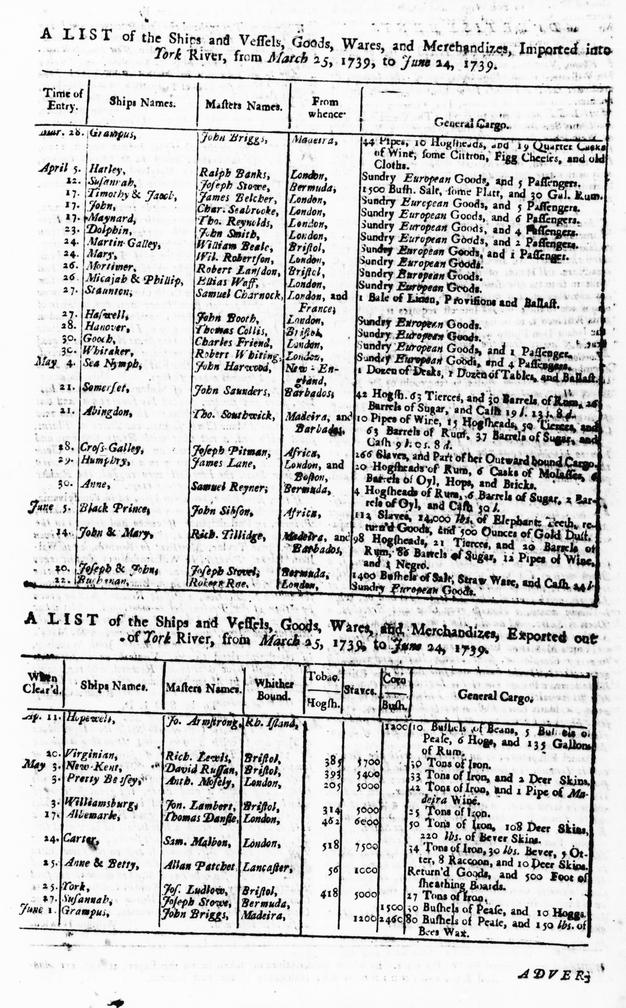 A LIST of the Ships and Veſſels, Goods, Wares, and Merchandizes, Imported into
York River, from March 25, 1739, to June 24, 1739.
Time of Entry. Ships Names. Maſters Names. From whence. General Cargo.
Mar. 28. Grampus, John Briggs, Madeira, 44 Pipes, 10 Hogſheads, and 19 Quarter Casks
of Wine, ſome Cittron, Figg Cheeſes, and old
Cloths.
April 5. Hatley, Ralph Banks, London, Sundry European Goods, and 5 Paſſengers.
12. Suſannah, Joſeph Stowe, Bermuda, 1500 Buſh. Salt, ſome Platt, and 30 Gal. Rum.
17. Timothy & Jacob, James Belcher, London, Sundry European Goods, and 5 Paſſengers.
17. John, Char. Seabrooke, London, Sundry European Goods, and 6 Paſſengers.
17. Maynard, Tho. Reynolds, London, Sundry European Goods, and 4 Paſſengers.
23. Dolphin, John Smith, London, Sundry European Goods, and 2 Paſſengers.
24. Martin Galley, William Beale, Briſtol, Sundry European Goods, and 1 Paſſenger.
24. Mary, Wil. Robertſon, London, Sundry European Goods.
26. Mortimer, Robert Lanſdon, Briſtol, Sundry European Goods.
26. Micajah & Phillip, Elias Waff, London, Sundry European Goods.
27. Staunton, Samuel Charnock, London, and 1 Bale of Linen, Proviſions and Ballaſt.
France;
27. Haſwell, John Booth, London, Sundry European Goods.
28. Hanover, Thomas Collis, Briſtol, Sundry European Goods.
30. Gooch, Charles Friend, London, Sundry European Goods, and 1 Paſſenger.
30. Whitaker, Robert Whiting, London, Sundry European Goods, and 4 Paſſengers.
May 4. Sea Nymph, John Harwood, New-En- 1 Dozen of Desks, 1 Dozen of Tables, and Ballaſt.
gland,
21. Somerſet, John Saunders, Barbados, 42 Hogſh. 63 Tierces, and 30 Barrels of Rum, 26
Barrels of Sugar, and Caſh 19 l. 13 s. 8 d.
21. Abingdon, Tho. Southwick, Madeira, and 10 Pipes of Wine, 15 Hogſheads, 50 Tierces, and
Barbados, 63 Barrels of Rum, 37 Barrels of Sugar, and
Caſh 9 l. 0 s. 8 d.
28. Croſs-Galley, Joſeph Pitman, Africa, 266 Slaves, and Part of her Outward bound Cargo.
29. Humphry, James Lane, London, and 20 Hogſheads of Rum, 6 Casks of Molaſſes, 6
Boſton, Barrels of Oyl, Hops, and Bricks.
30. Anne, Samuel Reyner, Bermuda, 4 Hogſheads of Rum, 6 Barrels of Sugar, 2 Bar-
rels of Oyl, and Caſh 50 l.
June 5. Black Prince, John Sibſon, Africa, 112 Slaves, 14,000 lbs. of Elephants Teeth, re-
turn'd Goods, and 300 Ounces of Gold Duſt.
14. John & Mary, Rich. Tillidge, Madeira, and 98 Hogſheads, 21 Tierces, and 20 Barrels of
Barbados, Rum, 86 Barrels of Sugar, 12 Pipes of Wine,
and 1 Negro.
20. Joſeph & John, Joſeph Stovel, Bermuda, 1400 Buſhels of Salt, Straw Ware, and Caſh
22. Buchanan, Robert Rae, London, Sundry European Goods.
A LIST of the Ships and Veſſels, Goods, Wares, and Merchandizes, Exported out
of York River, from March 25, 1739, to June 24, 1739.
When Clear'd. Ships Names. Maſters Names. Whither Bound. Tobac. Hogſh. Staves. Corn Buſh. General Cargo.
Ap. 11. Hopewell, Jo. Armſtrong, Rh. Iſland, 1200 10 Buſhels of Beans, 5 Buſhels of
Peaſe, 6 Hogs, and 135 Gallons
of Rum.
20. Virginian, Rich. Lewis, Briſtol, 385 5700 30 Tons of Iron.
May 3. New-Kent, David Ruſſan, Briſtol, 393 5400 33 Tons of Iron, and 2 Deer Skins.
3. Pretty Betſey, Anth. Moſely, London, 205 5000 22 Tons of Iron, and 1 Pipe of Ma-
deira Wine.
3. Williamsburg, Jon. Lambert, Briſtol, 314 5000 25 Tons of Iron.
17. Albemarle, Thomas Danſie, London, 462 6000 50 Tons of Iron, 108 Deer Skins,
220 lbs. of Bever Skins.
24. Carter, Sam. Malbon, London, 518 7500 34 Tons of Iron, 30 lbs. Bever, 5 Ot-
ter, 8 Raccoon, and 10 Deer Skins.
25. Anne & Betty, Allan Patchet, Lancaſter, 56 1000 Return'd Goods, and 500 Foot of
ſheathing Boards.
25. York, Joſ. Ludlow, Briſtol, 418 5000 27 Tons of Iron,
27. Suſannah, Joſeph Stowe, Bermuda, 1500 30 Buſhels of Peaſe, and 10 Hoggs.
June 1. Grampus, John Briggs, Madeira, 1200 2460 80 Buſhels of Peaſe, and 150 lbs. of
Bees Wax.
ADVER